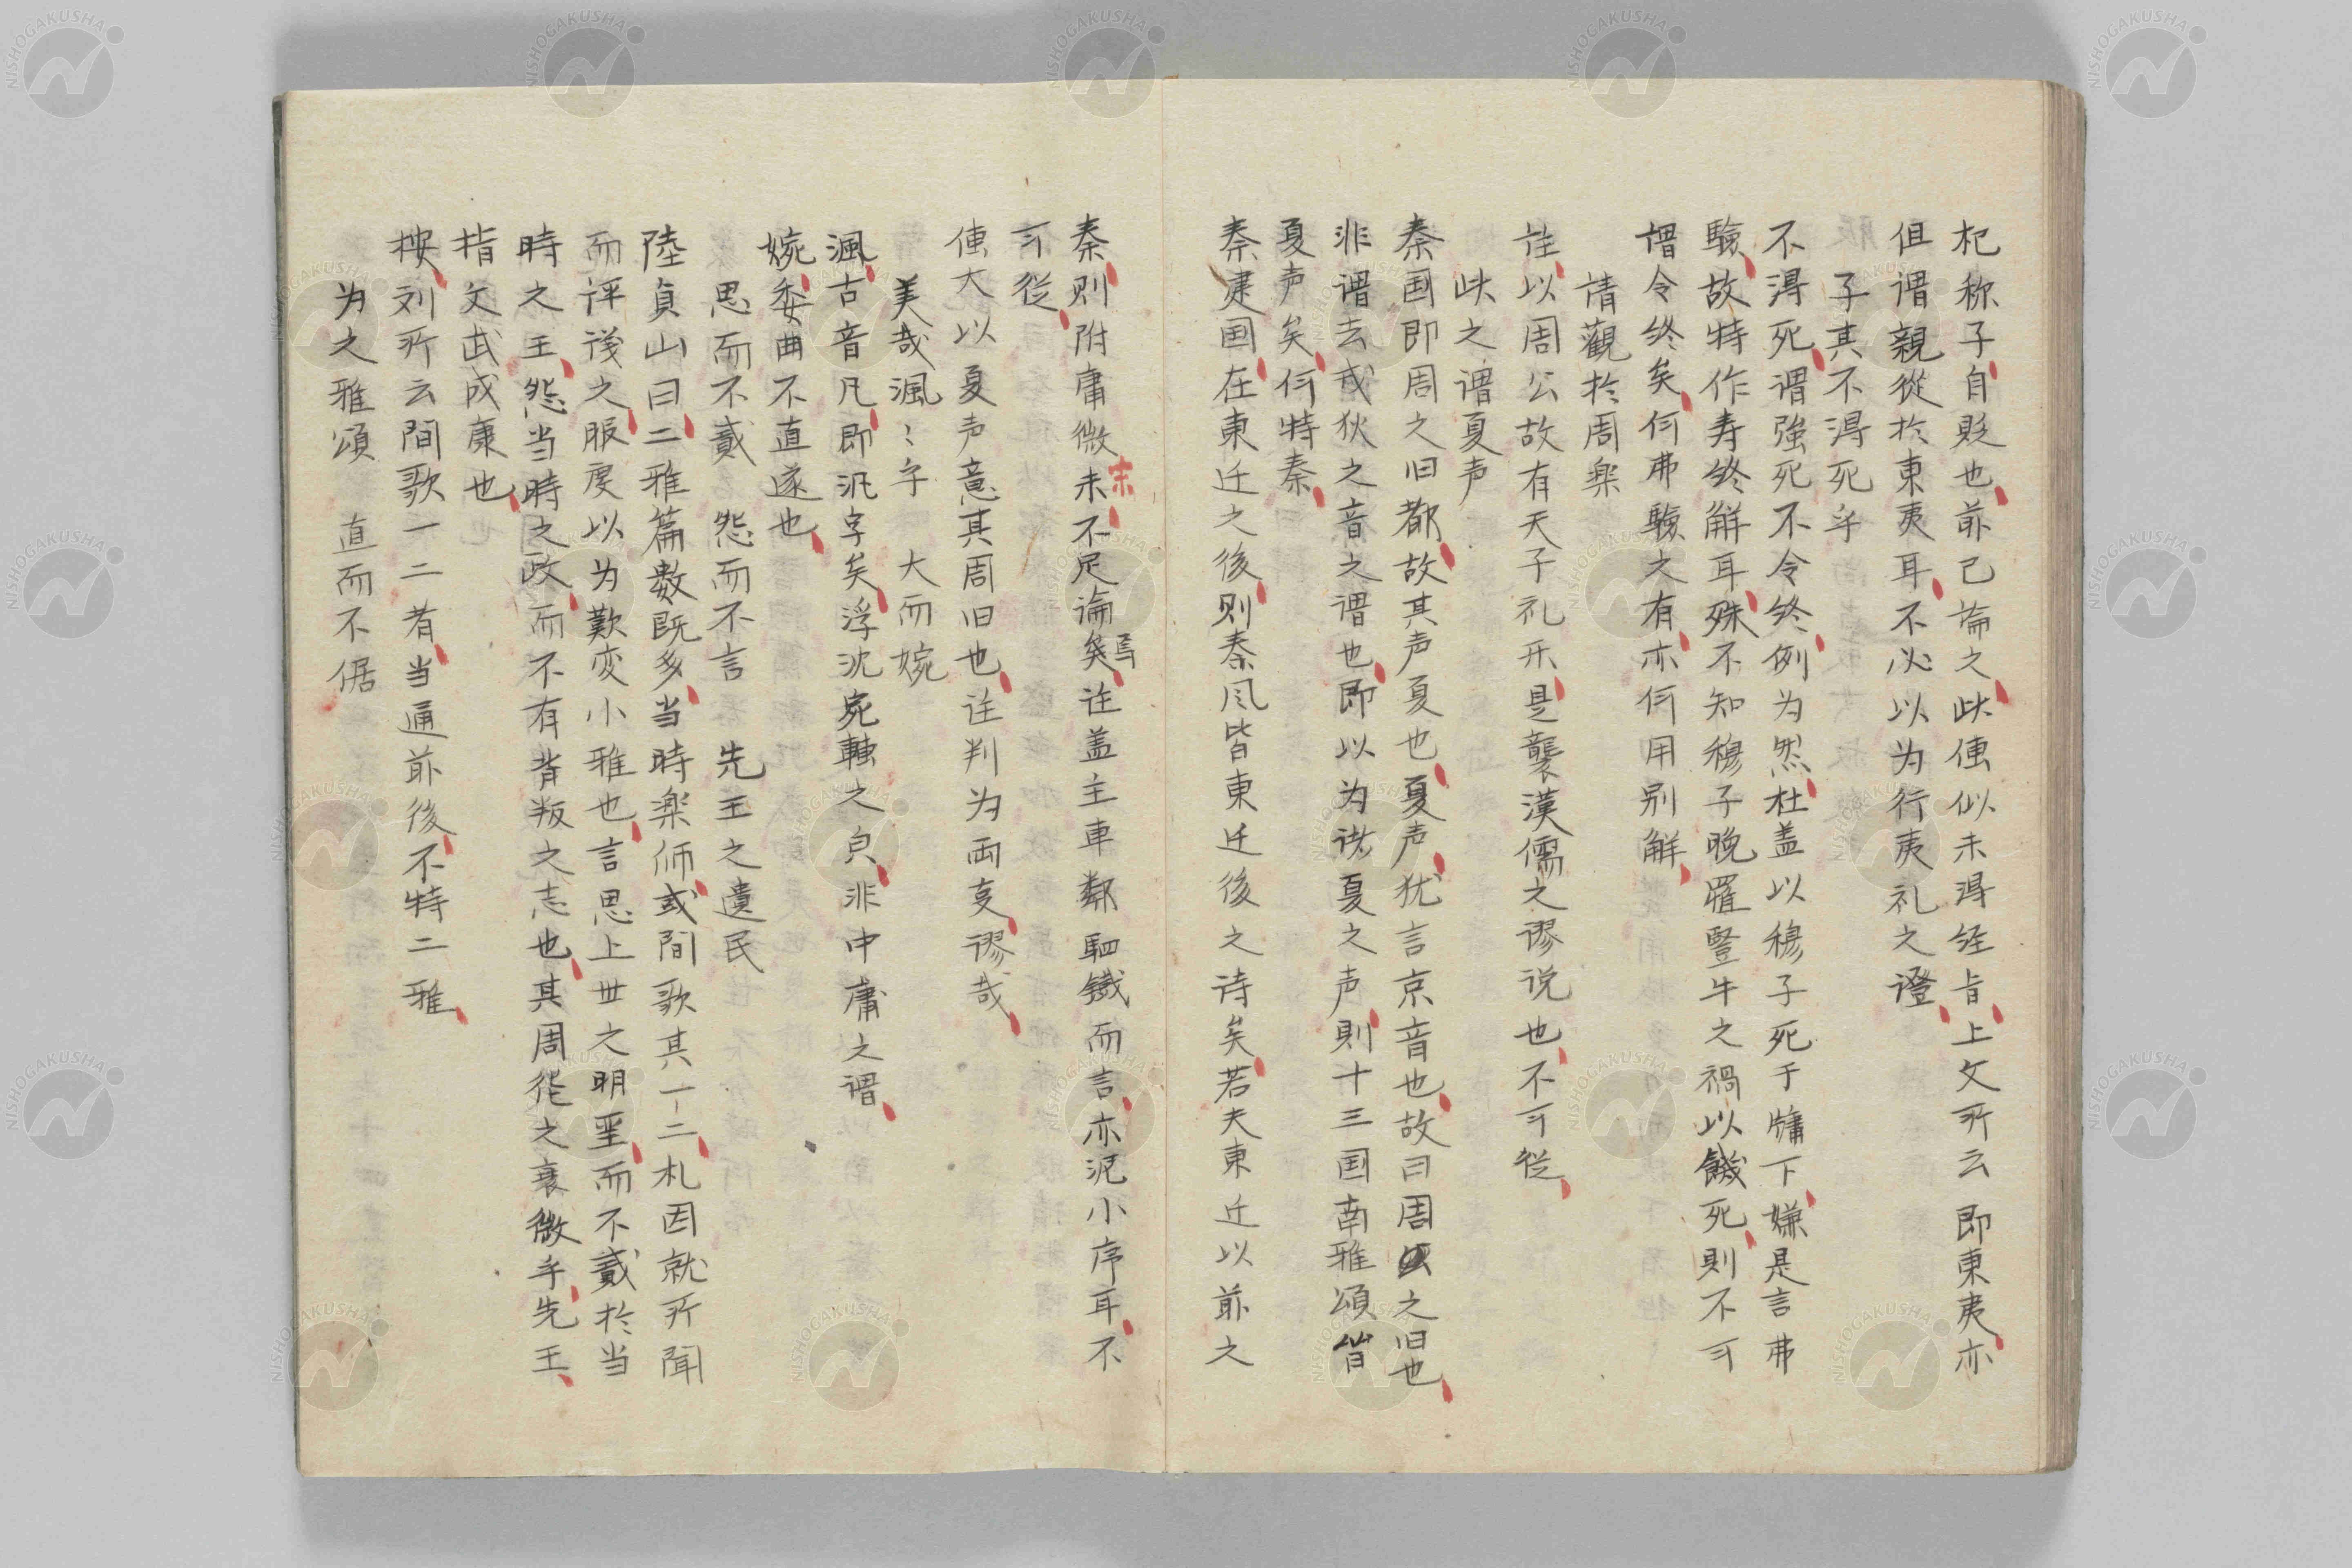 杞称子自貶也前已論之此傳似未得経旨上文所云即東夷亦
但謂親從於東夷耳不必以为行夷礼之證
子其不得死乎
不得死謂強死不令終例为然杜盖以穆子死于牖下嫌是言弗
驗故特作寿終解耳殊不知穆子晚罹豎牛之禍以饑死則不可
謂令終矣何弗驗之有亦何用别解
請觀於周楽
註以周公故有天子礼乐是襲漢儒之謬说也不可從
此之謂夏声
秦国即周之旧都故其声夏也夏声犹言京音也故曰周之旧也
非謂去戎狄之音之謂也即以为诸夏之声則十三国南雅頌皆
夏声矣何特秦
秦建国在東迁之後则秦风皆東迁後之诗矣若夫東迁以前之
秦则附庸微末不足論焉註盖主車鄰駟鐵而言亦泥小序耳不
可從
傳大以夏声意其周旧也註判为両支謬哉
美哉渢〻乎　大而婉
渢古音凡即汎字矣浮沈宛轉之皃非中庸之謂
婉委曲不直遂也
思而不貳　怨而不言　先王之遺民
陸貞山曰二雅篇数既多当時楽师或間歌其一二札因就所聞
而评議之服虔以为歎变小雅也言思上世之明聖而不貳於当
時之王怨当時之政而不有背叛之志也其周德之衰微乎先王
指文武成康也
按刘所云間歌一二者当通前後不特二雅
为之雅頌　直而不倨
NISHOGAKUSHA